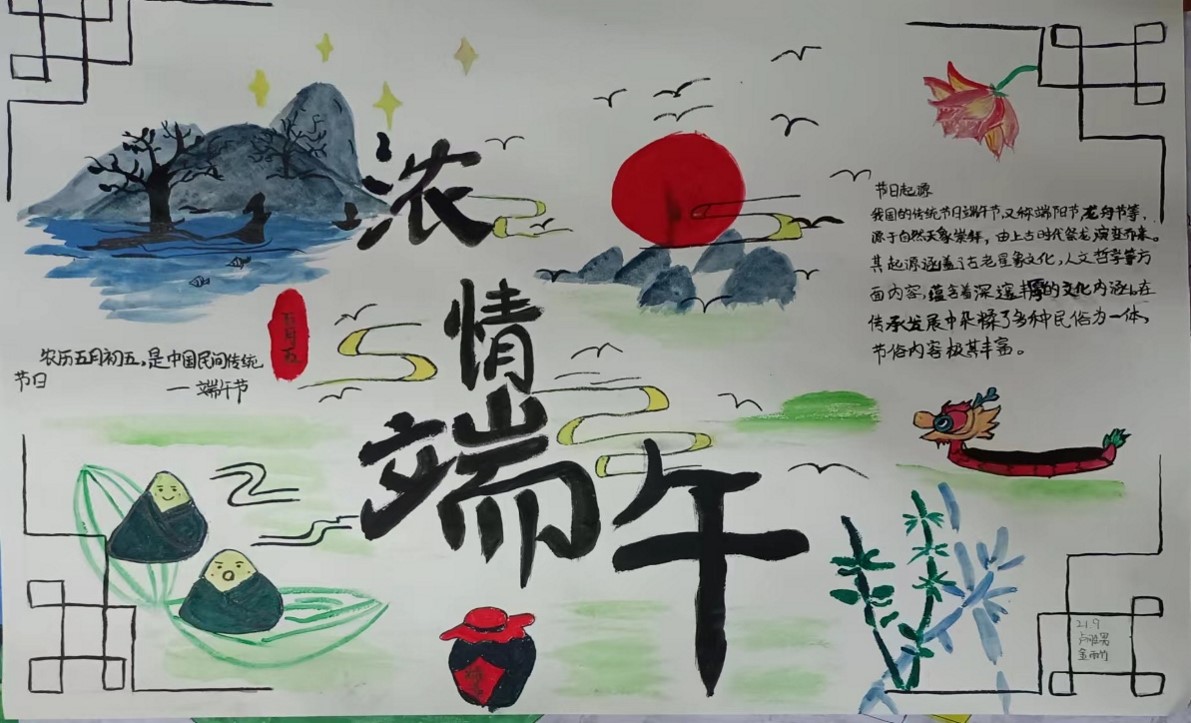 浓
情
端午
五月五
农历五月初五，是中国民间传统
节日
一 端午节
节日起源
我国的传统节日端午节，又称端阳节，龙舟节等，
源于自然天象崇拜，由上古时代祭龙演变而来。
其起源涵盖了古老星象文化，人文哲学等方
面内容，蕴含着深邃丰厚的文化内涵，在
传承发展中杂糅了多种民俗为一体，
节俗内容极其丰富。
219